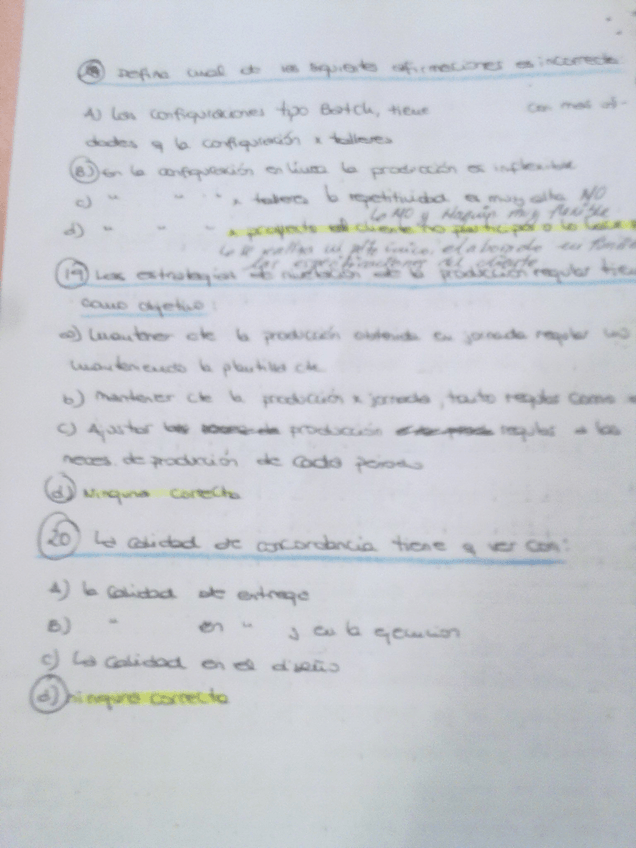 18 Defina cual de las siguientes afirmaciones es incorrecta
A) Las configuraciones tipo Batch, tiene con mas
dades q la configuración x talleres
B) En la configuración en línea la producción es inflexible
c) " " " x talleres la repetitividad es muy alta NO
la NO y Maquin muy flexible
d) " " " x proyecto el cliente no participa o lo hace
19 Las estrategias de nivelación de la producción regular
como objetivo:
a) Mantener cte la producción obtenida en jornada regular
manteniendo la plantilla cte.
b) Mantener cte la producción x jornada, tanto regular como
c) Ajustar producción regular a las
neces de producción de cada periodo
d) Ninguna correcta
20 La calidad de concordancia tiene q ver con:
A) la calidad de entrega
B) " en " y en la ejecución
c) La calidad en el diseño
d) ninguna correcta